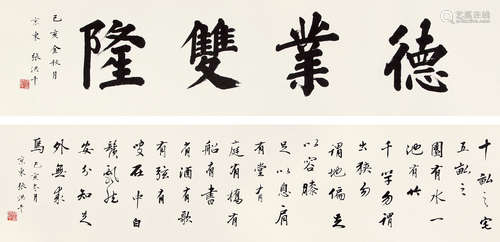 德業雙隆
己亥金秋月
京東 張洪
十畝之宅
五畝之
園有水一
池有竹
千竿勿謂
土狹勿
謂地偏足
以容膝
足以息肩
有堂有
庭有橋有
船有書
有酒有歌
有弦有
叟在中白
鬚飄然
安分知足
外無求
焉 己亥冬月
京東 張洪